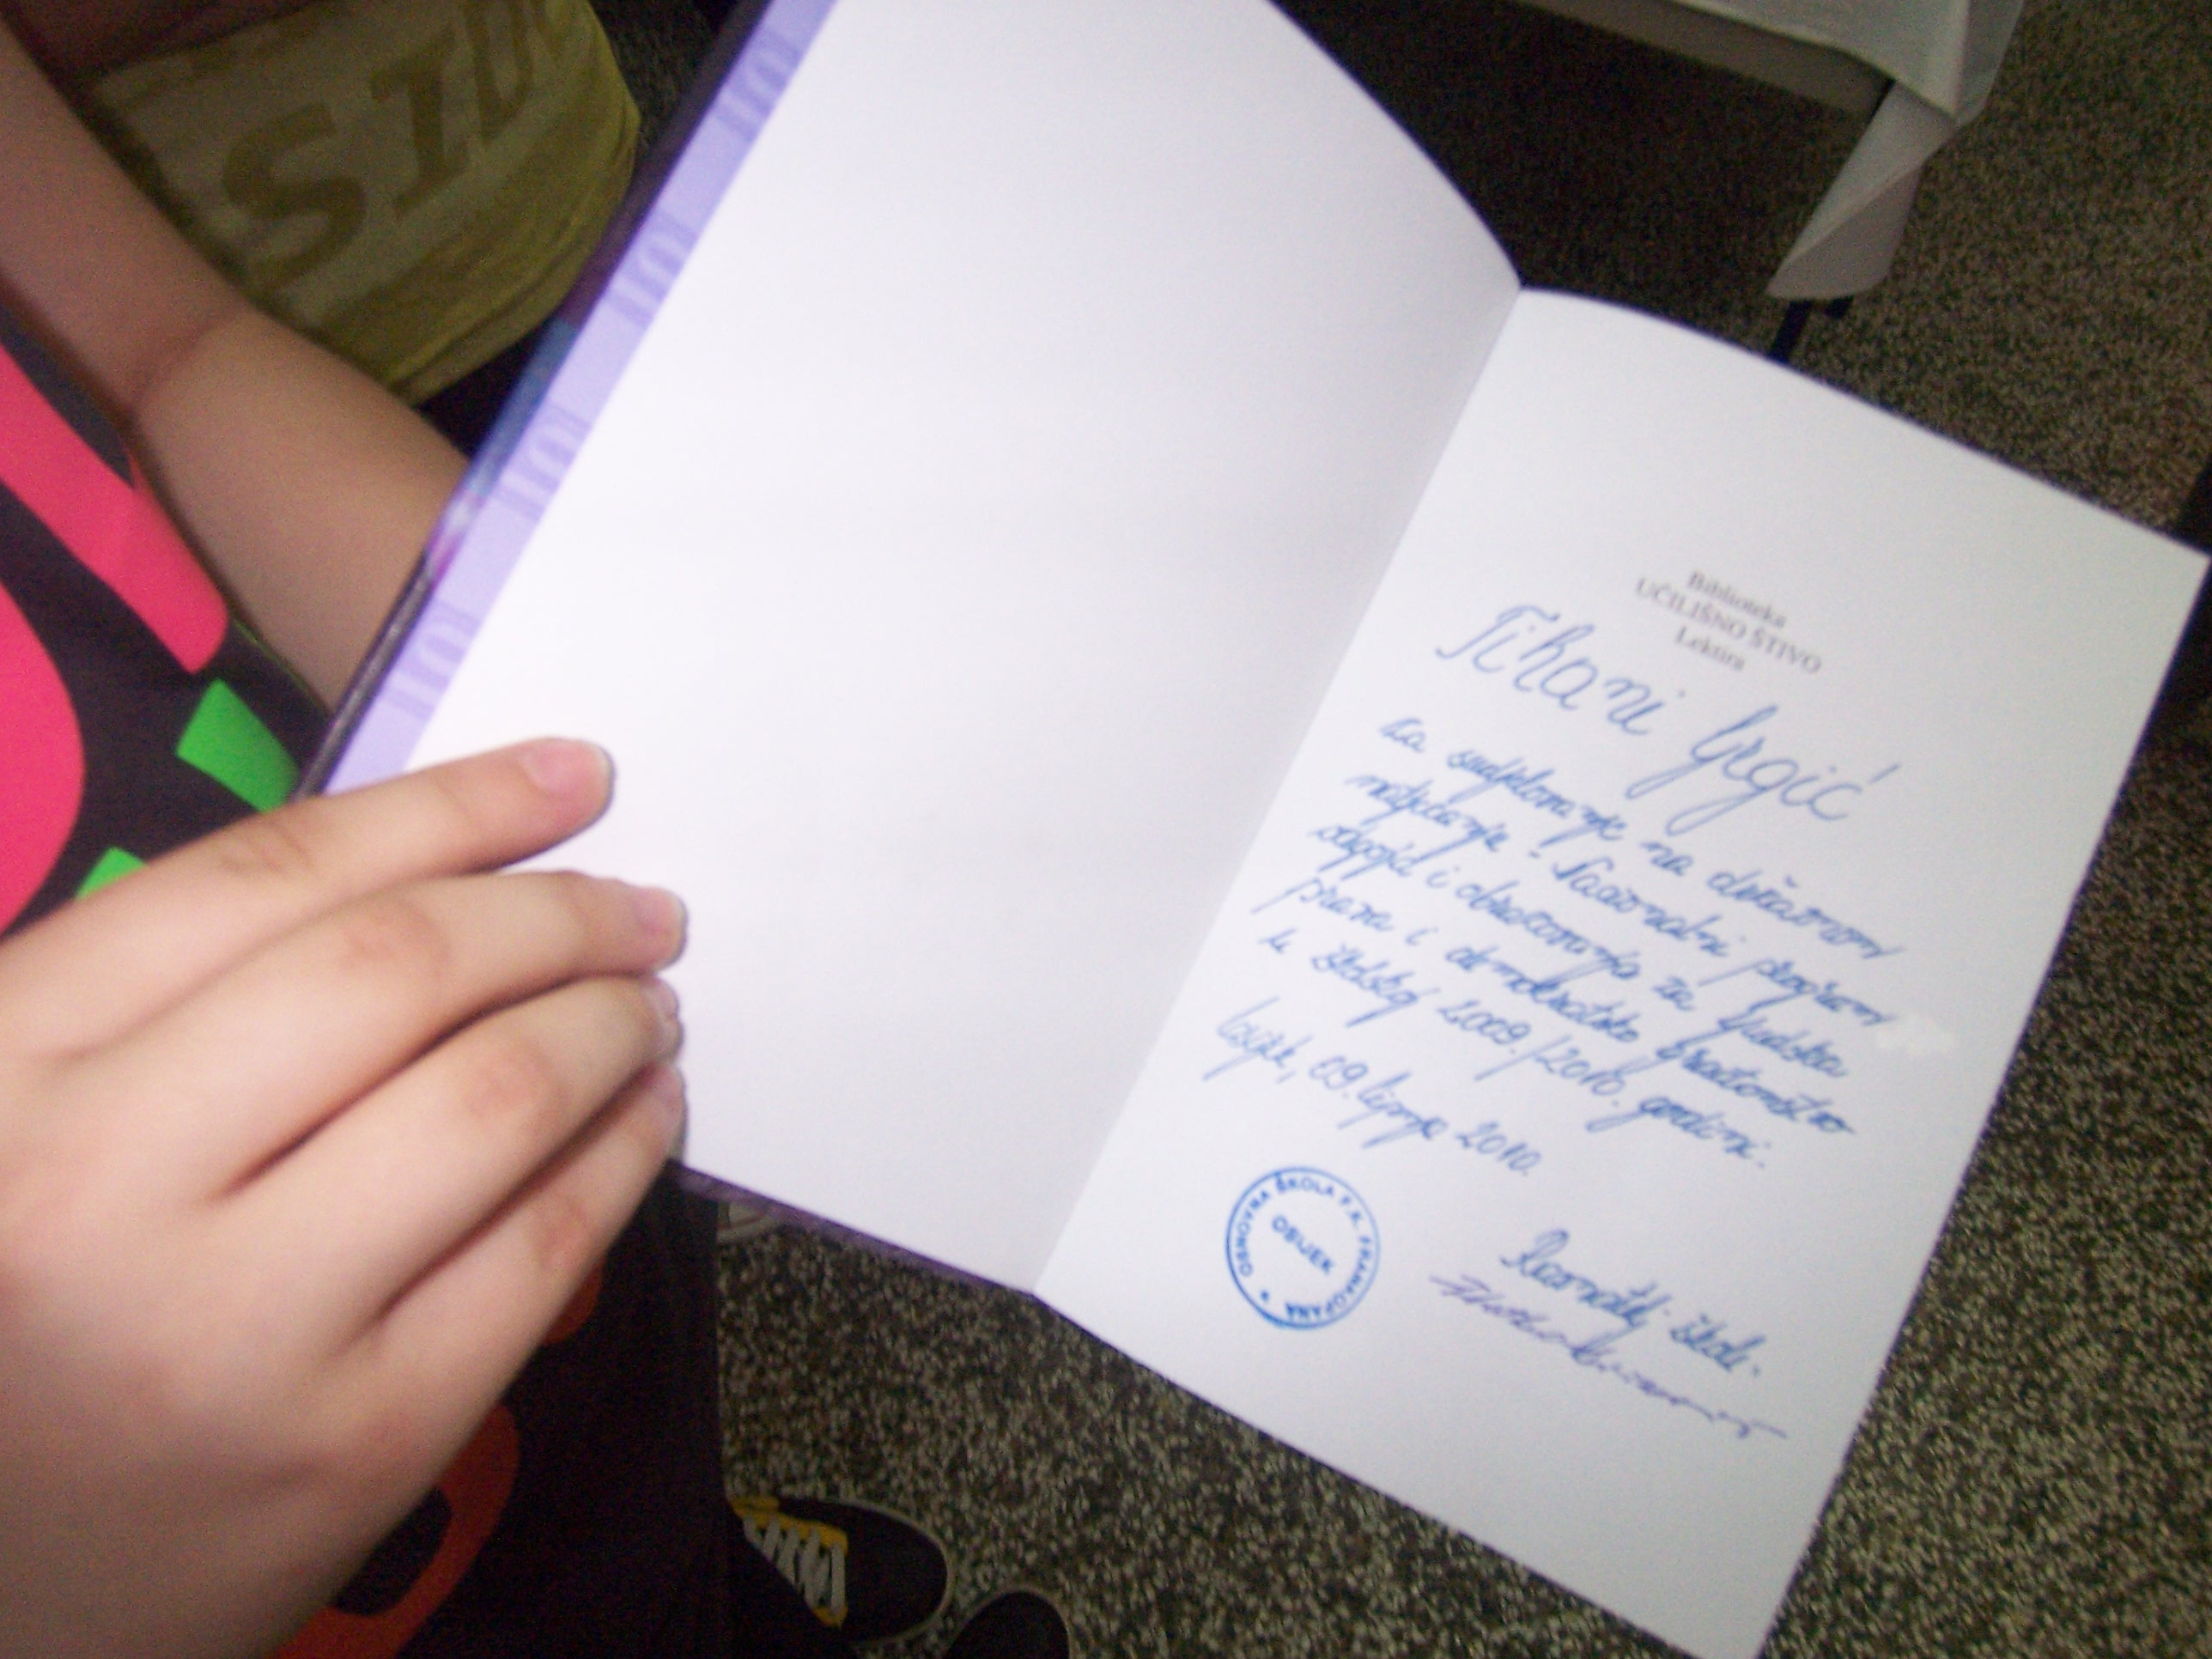 Biblioteka
UČILIŠNO ŠTIVO
Lektira
Tihani Grgić
za sudjelovanje na državnom
natjecanju - Nacionalni program
odgoja i obrazovanja za ljudska
prava i demokratsko građanstvo
u školskoj 2009./2010. godini.
Osijek, 09. lipnja 2010.
OSNOVNA ŠKOLA F. K. FRANKOPANA
OSIJEK
Ravnatelj škole: